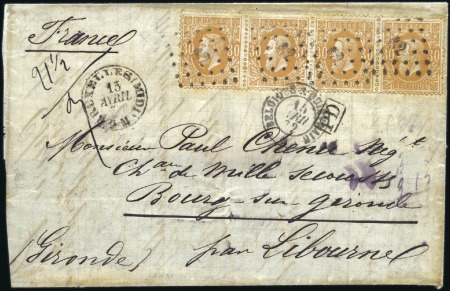 France
30 30 30 30
21 1/2
BRUXELLES (MIDI)
15
AVRIL
BELGIQUE
15
AVRIL
Monsieur Paul
Chau de Mille Secousses
Bourg-sur-gironde
(Gironde) par Libourne